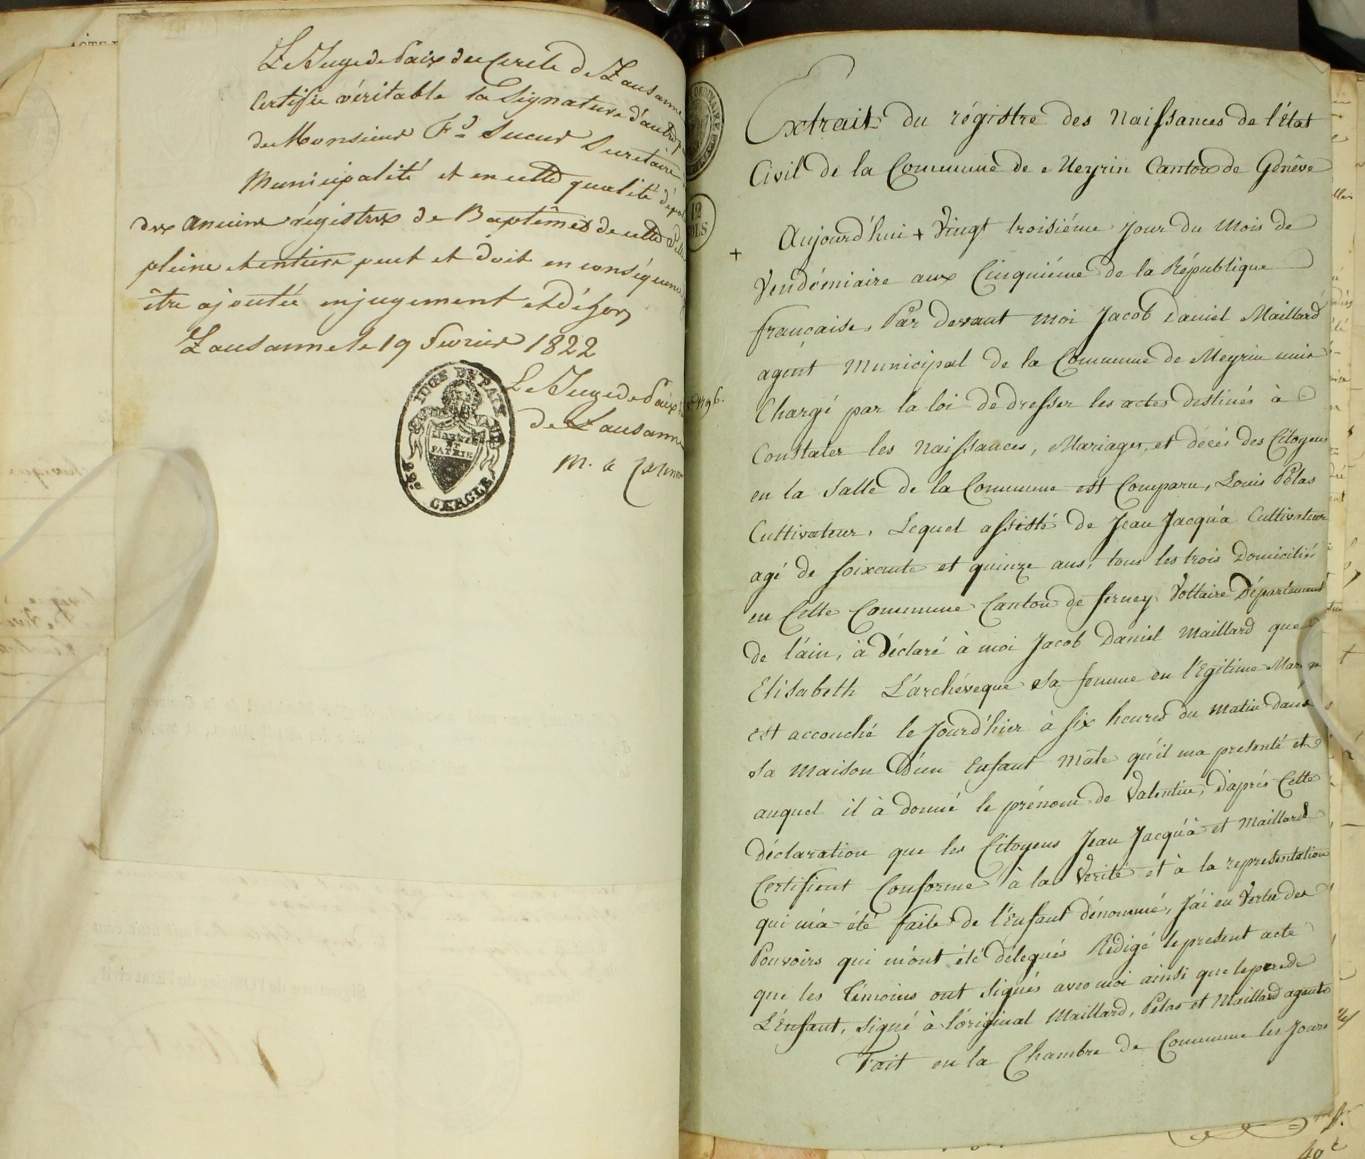 Le Juge de Paix du Cercle de Lausanne
Certifie véritable la Signature d'autre p
de Monsieur Fd Sueur Secrétaire
Municipalité et en cette qualité dépo
des anciens régistres de Baptêmes de cette
pleine et entière peut et doit en conséquence
être ajoutée en jugement et déhors
Lausanne le 19 Fevrier 1822
Le Juge de Paix
de Lausanne
JUGE DE PAIX DU
LIBERTÉ
ET
PATRIE
CERCLE
12
SOLS
Extrait du régistre des Naissances de l'État
Civil de la Commune de Meyrin Canton de Genêve
+ Aujourd'hui + Vingt troisiéme Jour du Mois de
Vendémiaire aux Cinquiéme de la République
française, Par devant moi Jacob Daniel Maillard
agent Municipal de la Commune de Meyrin
1796.
Chargé par la loi de dresser les actes destinés à
Constater les Naissances, Mariages, et décés des Citoyens
en la Salle de la Commune est Comparu, Louis Pélas
Cultivateur, Lequel assisté de Jean Jacquà Cultivateur
agé de soixante et quinze ans, tous les trois Domiciliés
en Cette Commune Canton de ferney Voltaire Département
de l'ain, à déclaré à moi Jacob Daniel Maillard que
Elisabeth L'archéveque Sa femme en l'Egitime Mariage
est accouché le Jourd'hier à six heures du Matin dans
Sa Maison D'un Enfant Mâle qu'il ma presenté et
auquel il à donné le prénom de Valentin, D'aprés Cette
déclaration que les Citoyens Jean Jacquà et Maillard
Certifient Conforme à la Verité et à la representation
qui m'a été faite de l'Enfant dénommé, J'ai en Vertu des
Pouvoirs qui m'ont été délegués Rédigé le present acte
que les Témoins ont signés avec moi ainsi que le pere de
L'Enfant, Signé à l'original Maillard, Pélas et Maillard agent
Fait en la Chambre de Commune les Jours